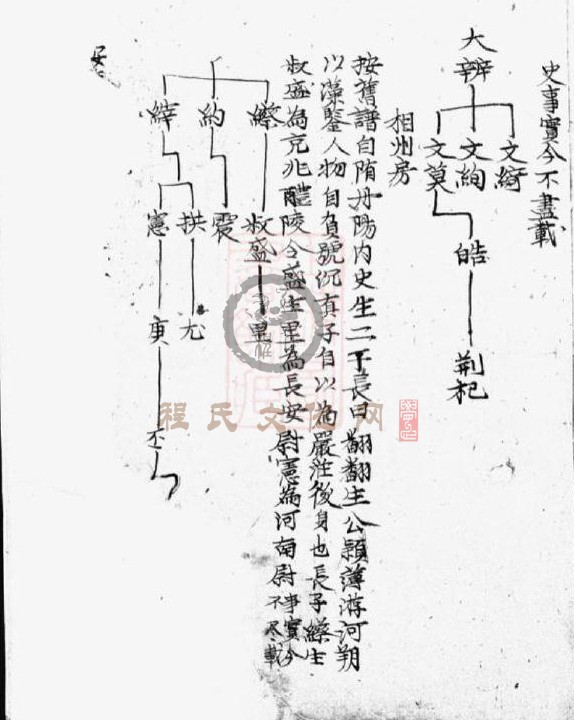 史事實今不盡載
大辨
文綺
文絢
文莫
皓
荆杞
相州房
按舊譜自隋丹陽内史生二子長曰翻翻生公穎薄游河朔
以藻鑒人物自負號沉真子自以為嚴莊後身也長子繰生
叔盛為京兆醴陵令盛生里為長安尉憲為河南尉事實今
不尽載
約
繂
叔盛
里
震
拱
尤
憲
庚
丕
程氏文化网